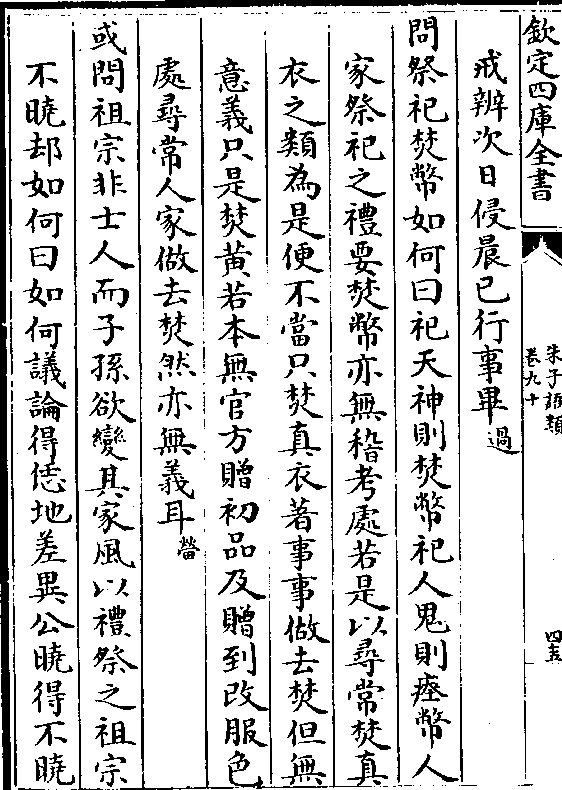 欽定四庫全書
朱子語類
卷九十
四五
戒辦次日侵晨已行事畢過
問祭祀焚幣如何曰祀天神則焚幣祀人鬼則瘞幣人
家祭祀之禮要焚幣亦無稽考處若是以尋常焚真
衣之類為是便不當只焚真衣著事事做去焚但無
意義只是焚黃若本無官方贈初品及贈到改服色
處尋常人家做去焚然亦無義耳㽦
或問祖宗非士人而子孫欲變其家風以禮祭之祖宗
不曉却如何曰如何議論得恁地差異公曉得不曉